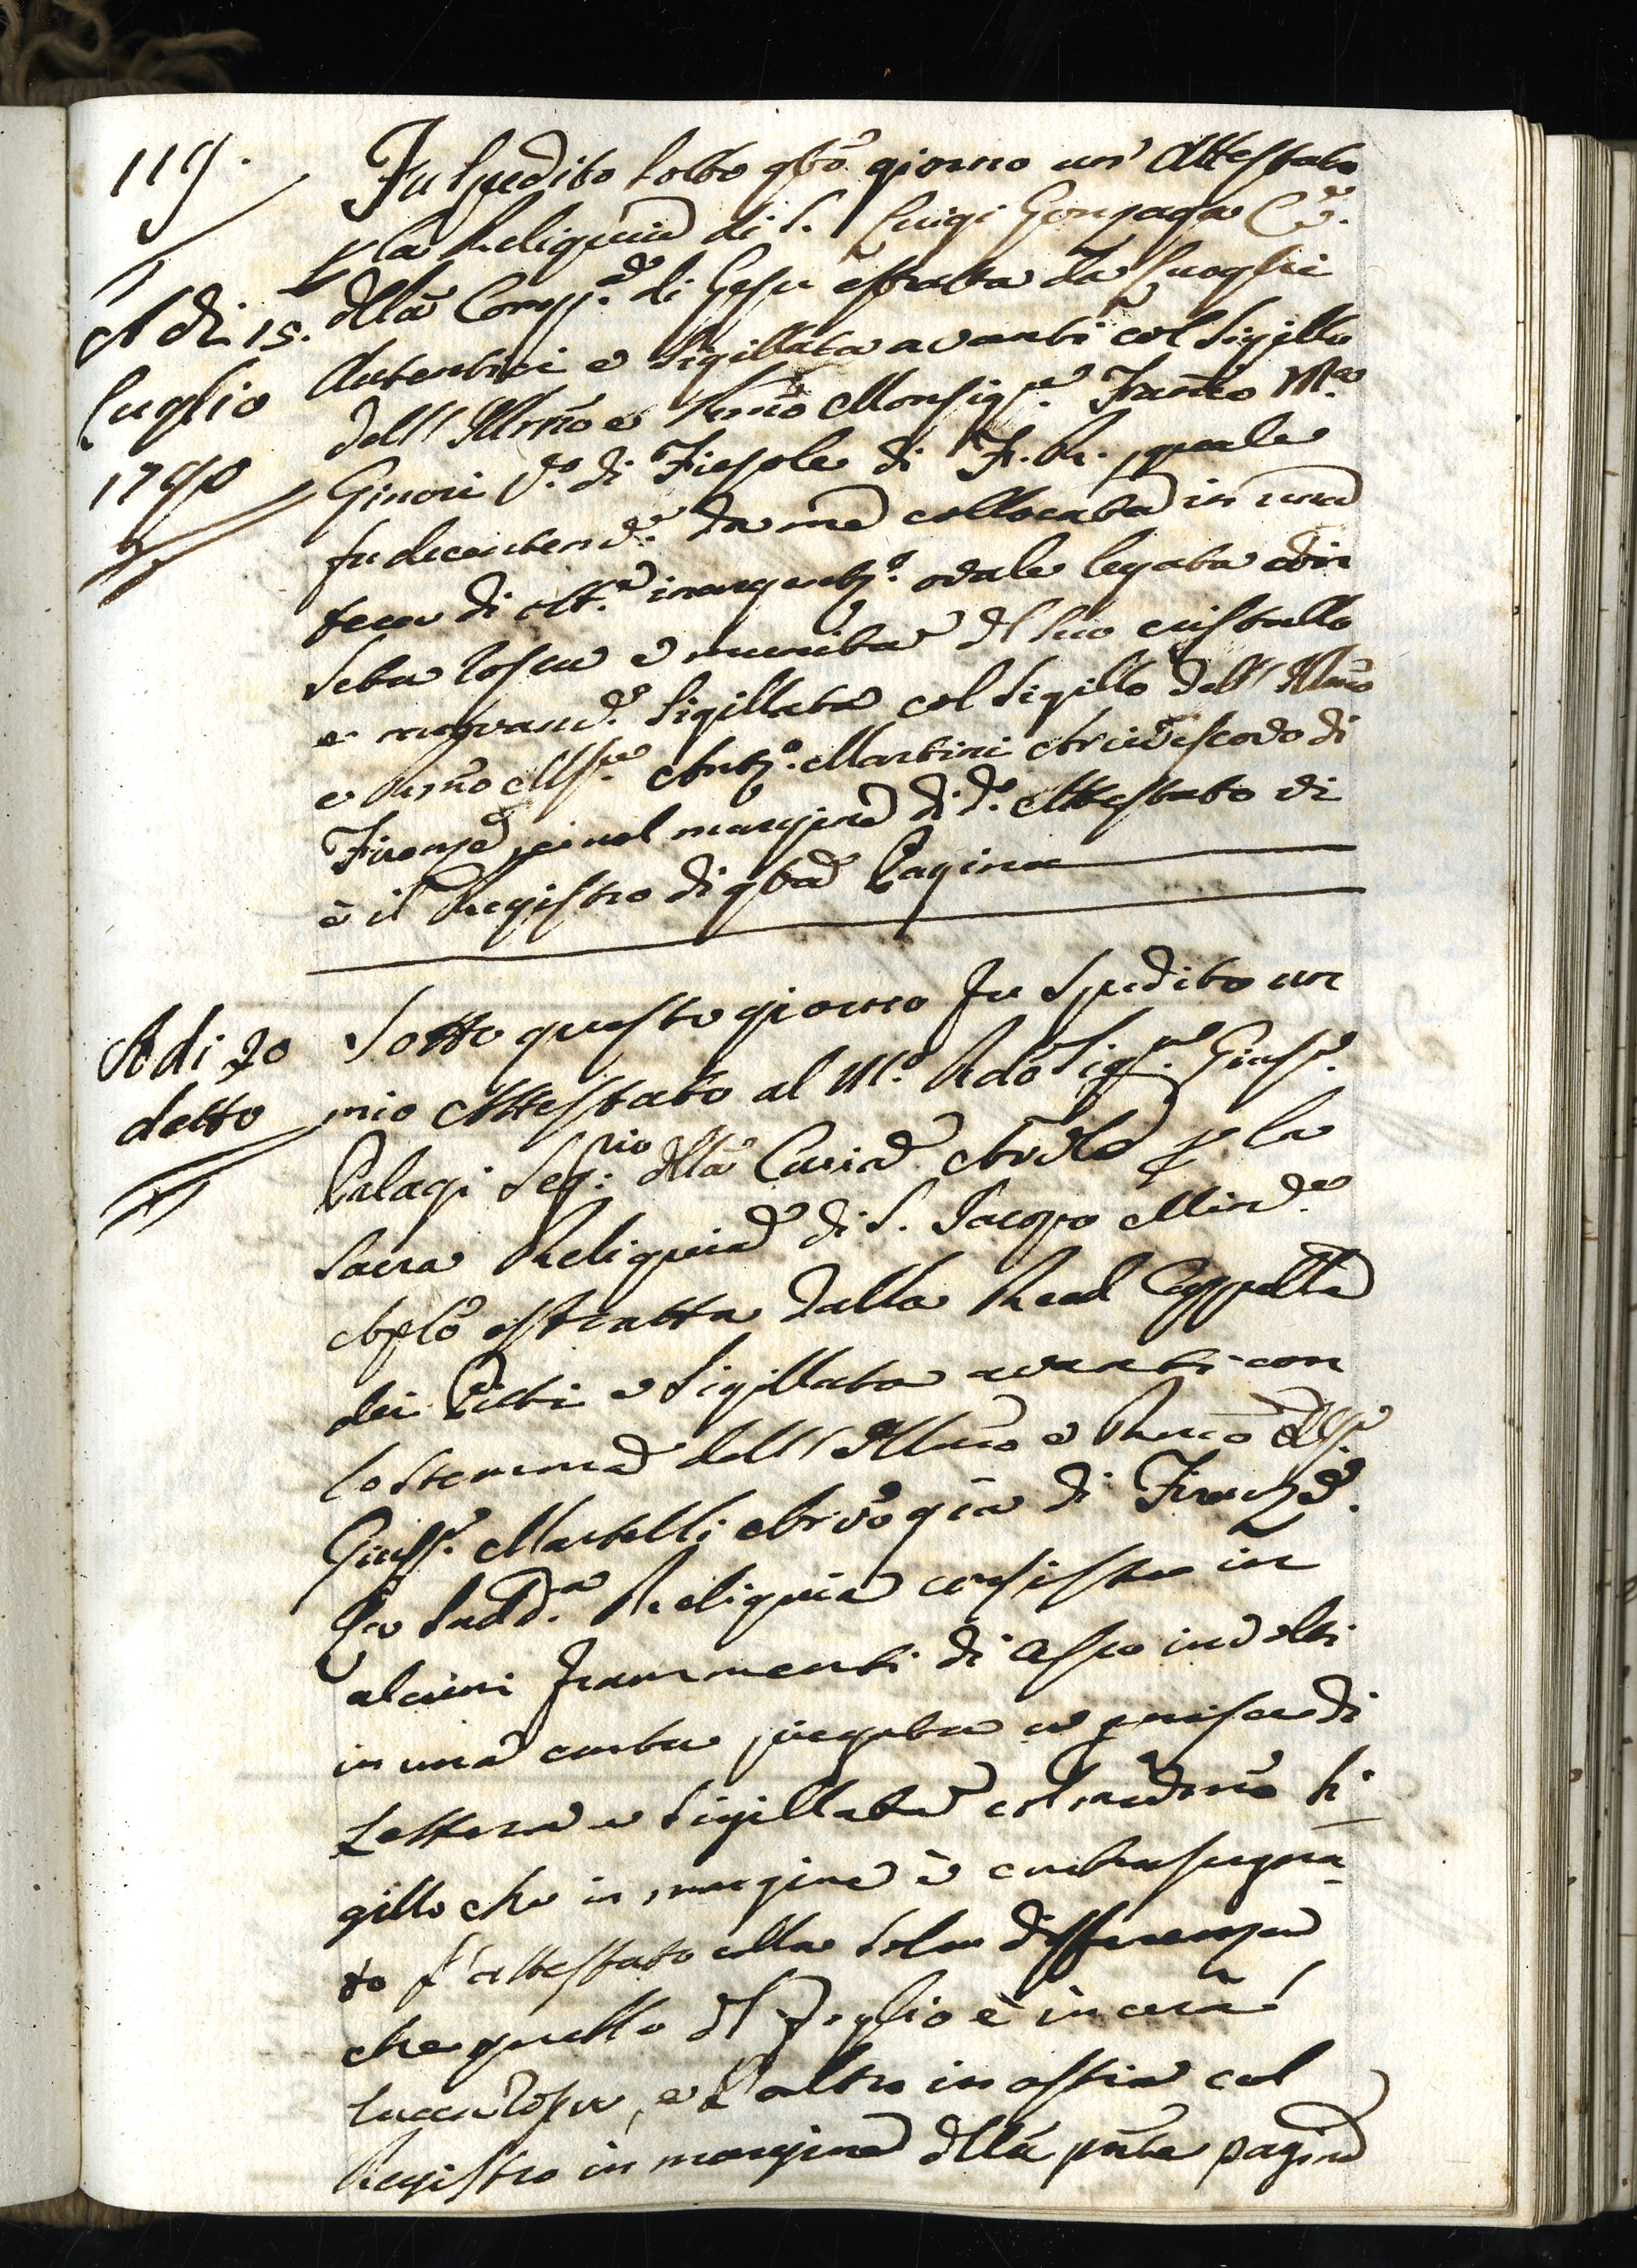 119.
Fu spedito sotto qto giorno un' Attestato
p la Reliquia di S. Luigi Gonzaga Cē.
dlla Comp.a di Gesu estratta da Luoghi
Autentici e sigillata avanti col sigillo
dell' Illmo e Rmo Monsigre. Franco Ma
Ginori Vo. di Fiesole di F. R., quale
fu decentemte. da me collocata in una
teca di Ott.e inargento. ovale legata con
seta rossa e munita dl suo cristallo
e nuovamte. sigillata col sigillo dell' Illmo
e Rmo Msre Anto. Martini Arcivescovo di
Firenze, e nel margine di do. Attestato vi
è il Registro di qta Pagina
A di 15.
Luglio
1790
Sotto questo giorno fu spedito un
mio Attestato al Mo. Rdo Sigre. Giuspe.
Palagi Segrio dlla Curia Arvle p la
Sacra Reliquia di S. Jacopo Minre
Aplo estratta dalla Real Cappella
dei Pitti e sigillata avanti con
lo stemma dell' Illmo e Rmo Mre
Giuspe. Martelli Arvo già di Firenze.
La sudda Reliquia consiste in
alcuni frammenti di osso involti
in una carta piegata a guisa di
Lettera e sigillata col medmo si-
gillo che in margine è contrasegna-
to l'attestato colla sola differenza
che quello dl foglio è in cera
lacca rossa, e l'altro in ostia col
Registro in margine dlla pnte pagina
A di 20
detto